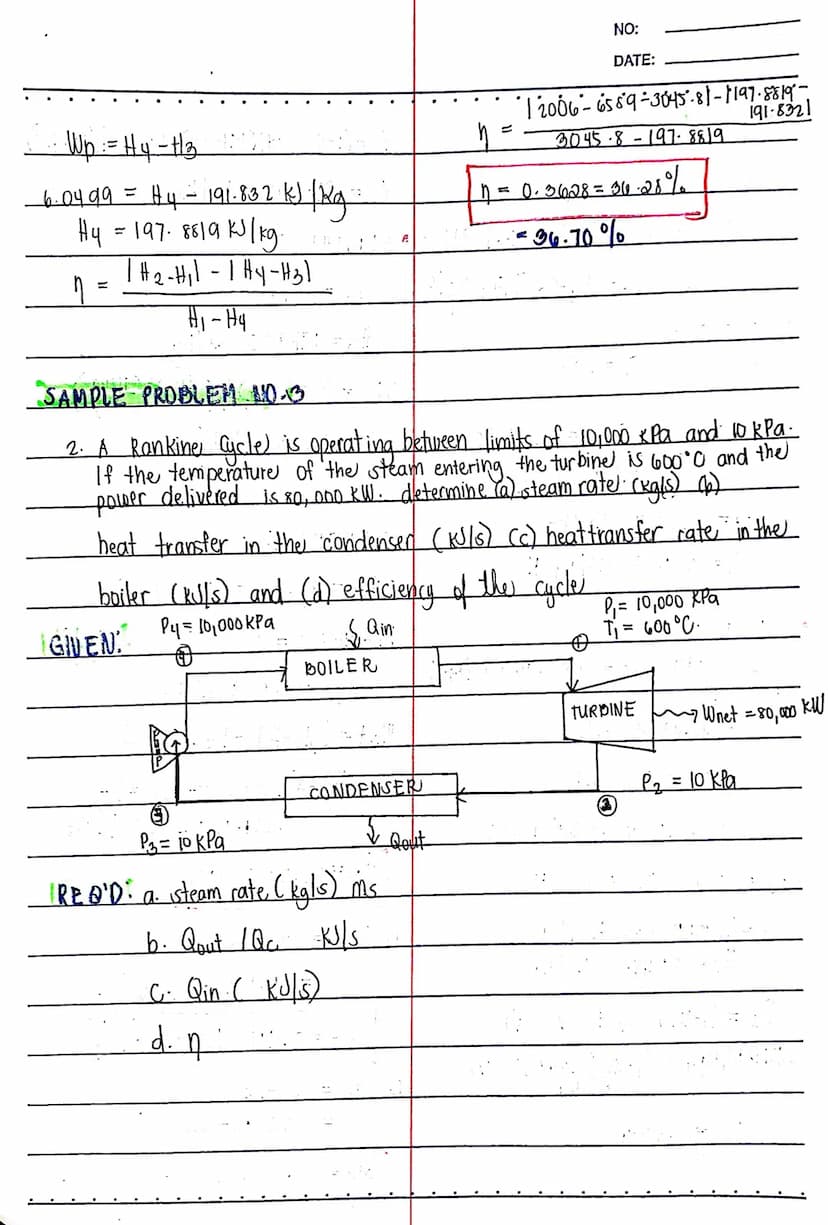 NO:
DATE:
Wp = H4 - H3
6.0499 = H4 - 191.832 kJ/kg
H4 = 197.8819 kJ/kg
η = |H2-H1| - |H4-H3|
H1 - H4
η = |2006.6589-3045.8|-|197.8819-
191.832|
3045.8 - 197.8819
η = 0.3628 = 36.28%
= 36.70%
SAMPLE PROBLEM NO.3
2. A Rankine Cycle is operating between limits of 10,000 kPa and 10 kPa.
If the temperature of the steam entering the turbine is 600°C and the
power delivered is 80,000 kW. determine (a) steam rate (kg/s) (b)
heat transfer in the condenser (kJ/s) (c) heat transfer rate in the
boiler (kJ/s) and (d) efficiency of the cycle
GIVEN:
P4 = 10,000 kPa
Qin
P1 = 10,000 kPa
T1 = 600°C.
4
BOILER
1
TURBINE
Wnet = 80,000 kW
P
CONDENSER
P2 = 10 kPa
3
2
P3 = 10 kPa
Qout
REQ'D: a. steam rate (kg/s) ms
b. Qout /Qc kJ/s
c. Qin ( kJ/s)
d. η